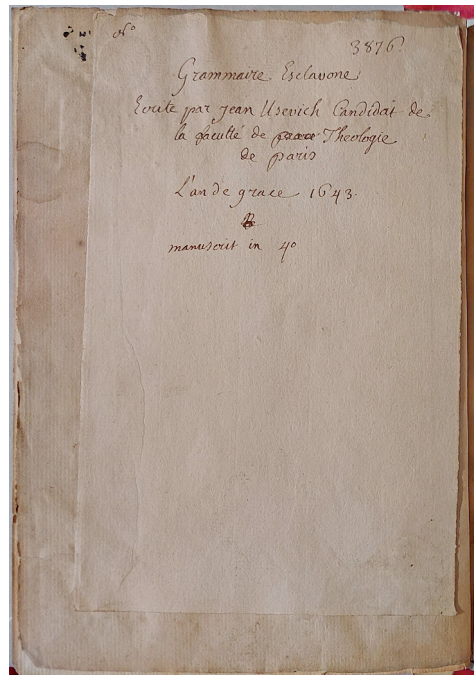 N°
3876
Grammaire Esclavone
Ecrite par Jean Usevich Candidat de
la faculté de Theologie
de paris
L'an de grace 1643.
manuscrit in 4°